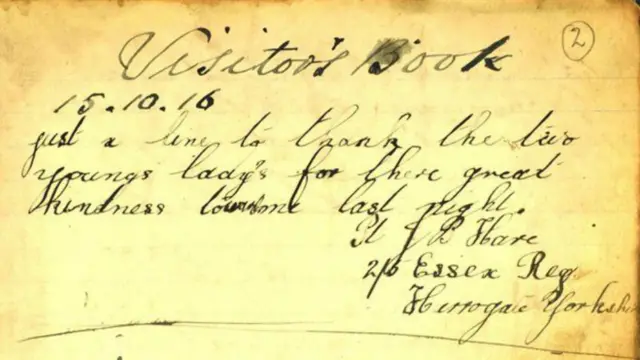 Visitor's Book
2
15.10.16
just a line to thank the two
youngs lady's for there great
kindness last night.
Pt J R Hare
2/5 Essex Reg
Herrogate Yorkshire